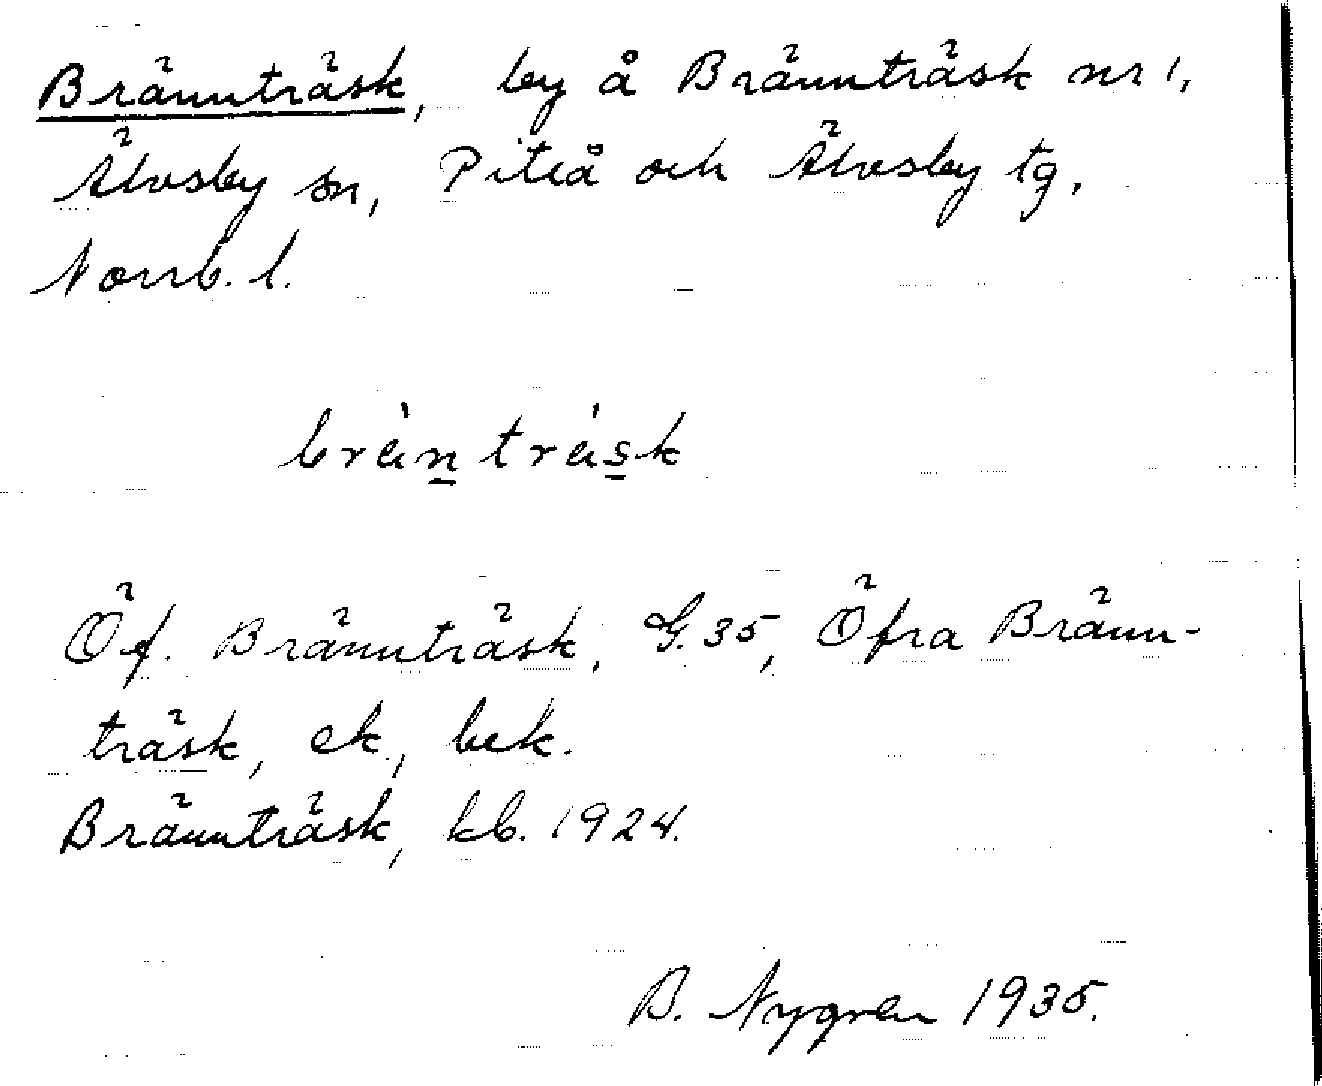 Brännträsk, by å Brännträsk nr 1,
Älvsby sn, Piteå och Älvsby tg,
Norrb. l.
brä̀nträ̀sk
Öf. Brännträsk, G. 35, Öfra Bränn-
träsk, ek., bek.
Brännträsk, kb. 1924.
B. Nygren 1935.